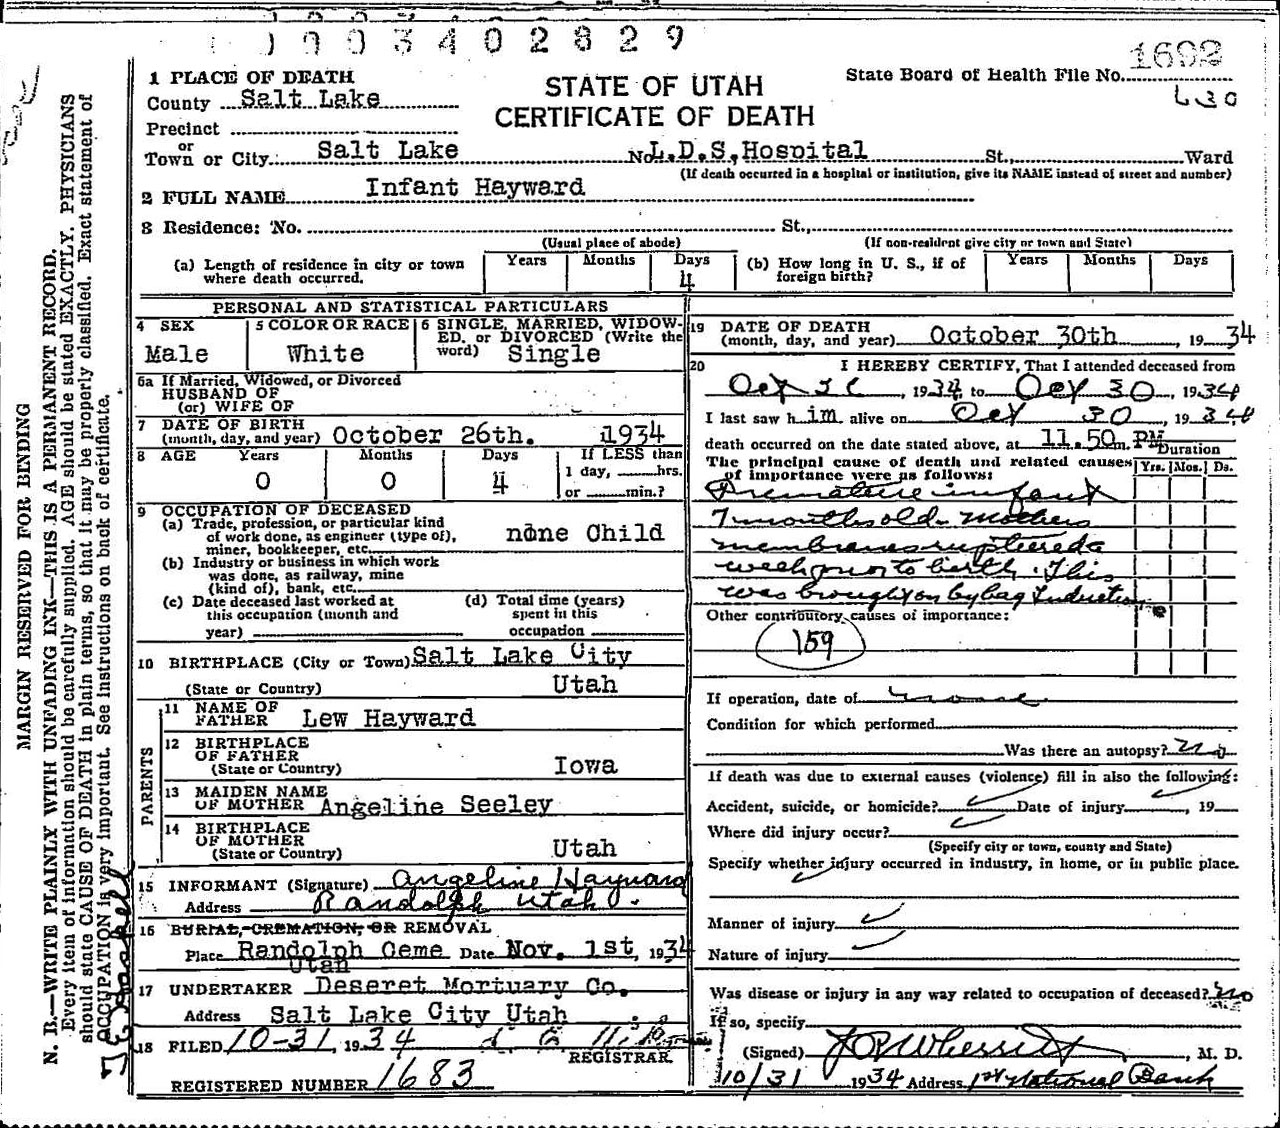 1003402829
1692
State Board of Health File No.
630
STATE OF UTAH
CERTIFICATE OF DEATH
1 PLACE OF DEATH
County Salt Lake
Precinct
or
Town or City: Salt Lake No. L.D.S. Hospital St., Ward
(If death occurred in a hospital or institution, give its NAME instead of street and number)
2 FULL NAME Infant Hayward
3 Residence: No. St.,
(Usual place of abode) (If non-resident give city or town and State)
(a) Length of residence in city or town where death occurred. Years Months Days 4
(b) How long in U. S., if of foreign birth? Years Months Days
PERSONAL AND STATISTICAL PARTICULARS
4 SEX Male
5 COLOR OR RACE White
6 SINGLE, MARRIED, WIDOW-
ED, or DIVORCED (Write the
word) Single
6a If Married, Widowed, or Divorced
HUSBAND OF
(or) WIFE OF
7 DATE OF BIRTH
(month, day, and year) October 26th. 1934
8 AGE Years Months Days If LESS than
1 day, hrs.
0 0 4 or min.?
9 OCCUPATION OF DECEASED
(a) Trade, profession, or particular kind
of work done, as engineer (type of),
miner, bookkeeper, etc. none Child
(b) Industry or business in which work
was done, as railway, mine
(kind of), bank, etc.
(c) Date deceased last worked at
this occupation (month and
year)
(d) Total time (years)
spent in this
occupation
10 BIRTHPLACE (City or Town) Salt Lake City
(State or Country) Utah
PARENTS
11 NAME OF
FATHER Lew Hayward
12 BIRTHPLACE
OF FATHER
(State or Country) Iowa
13 MAIDEN NAME
OF MOTHER Angeline Seeley
14 BIRTHPLACE
OF MOTHER
(State or Country) Utah
15 INFORMANT (Signature) Angeline Hayward
Address Randolph Utah.
16 BURIAL, CREMATION, OR REMOVAL
Place Randolph Ceme Date Nov. 1st, 1934
Utah
17 UNDERTAKER Deseret Mortuary Co.
Address Salt Lake City Utah
18 FILED 10-31, 1934
REGISTRAR.
REGISTERED NUMBER 1683
19 DATE OF DEATH
(month, day, and year) October 30th, 1934
20 I HEREBY CERTIFY, That I attended deceased from
Oct 26, 1934, to Oct 30, 1934
I last saw him alive on Oct 30, 1934
death occurred on the date stated above, at 11.50 m. PM
Duration
The principal cause of death and related causes
of importance were as follows: Yrs. Mos. Ds.
Premature infant
7 months old - Mothers
membranes ruptured a
week prior to birth. This
was brought on by bag Induction
Other contributory causes of importance:
159
If operation, date of none
Condition for which performed
Was there an autopsy? no
If death was due to external causes (violence) fill in also the following:
Accident, suicide, or homicide? Date of injury, 19
Where did injury occur?
(Specify city or town, county and State)
Specify whether injury occurred in industry, in home, or in public place.
Manner of injury
Nature of injury
Was disease or injury in any way related to occupation of deceased? no
If so, specify
(Signed) , M. D.
10/31 1934 Address 1st National Bank
MARGIN RESERVED FOR BINDING
N. B.—WRITE PLAINLY WITH UNFADING INK—THIS IS A PERMANENT RECORD.
Every item of information should be carefully supplied. AGE should be stated EXACTLY. PHYSICIANS
should state CAUSE OF DEATH in plain terms, so that it may be properly classified. Exact statement of
OCCUPATION is very important. See instructions on back of certificate.